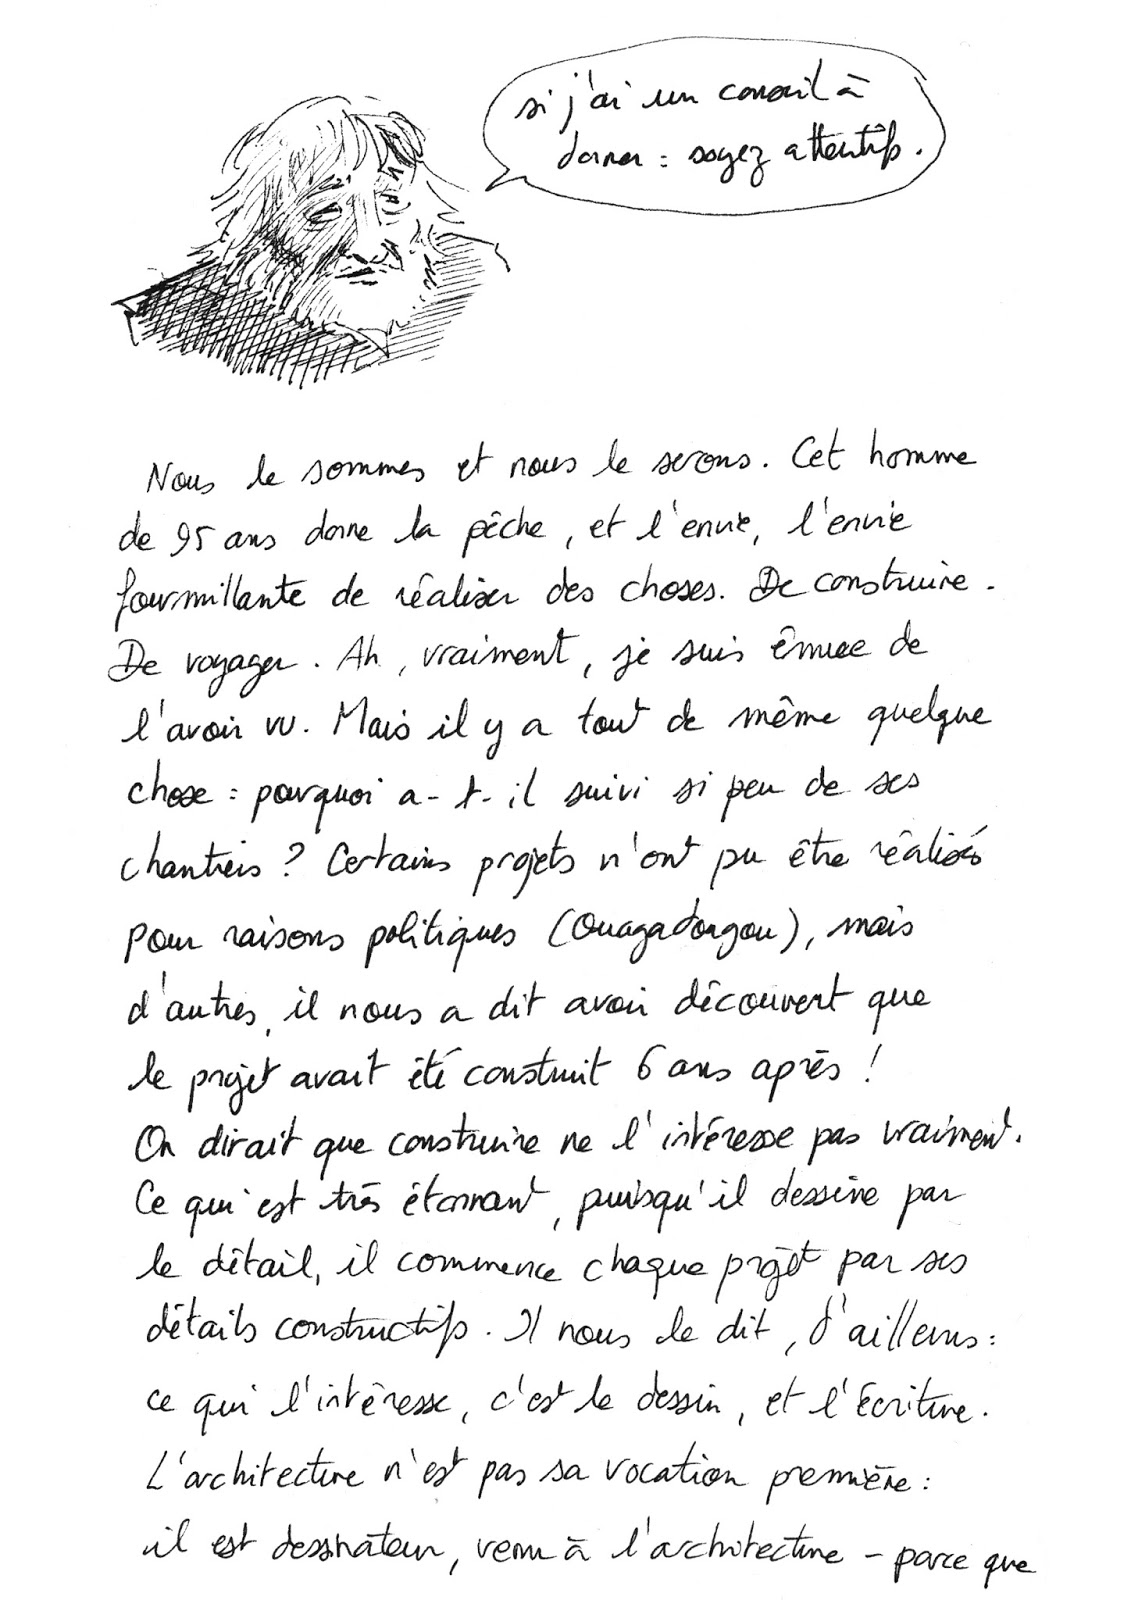 si j'ai un conseil à
donner : soyez attentifs.
Nous le sommes et nous le serons. Cet homme
de 95 ans donne la pêche, et l'envie, l'envie
fourmillante de réaliser des choses. De construire.
De voyager. Ah, vraiment, je suis émue de
l'avoir vu. Mais il y a tout de même quelque
chose : pourquoi a-t-il suivi si peu de ses
chantiers ? Certains projets n'ont pu être réalisés
pour raisons politiques (Ouagadougou), mais
d'autres, il nous a dit avoir découvert que
le projet avait été construit 6 ans après !
On dirait que construire ne l'intéresse pas vraiment.
Ce qui est très étonnant, puisqu'il dessine par
le détail, il commence chaque projet par ses
détails constructifs. Il nous le dit, d'ailleurs :
ce qui l'intéresse, c'est le dessin, et l'écriture.
L'architecture n'est pas sa vocation première :
il est dessinateur, venu à l'architecture - parce que